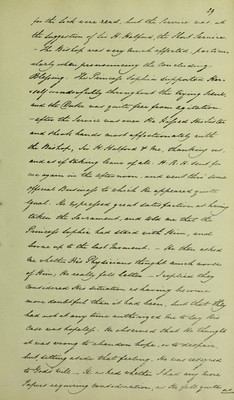 29
for the Sick were read, but the Service was at
the suggestion of Sir H Halford, the Short Service
- The Bishop was very much affected, particu
larly when pronouncing the Concluding
Blessing. The Princess Sophia supported Her
self wonderfully throughout the trying Scene,
and the Duke was quite free from agitation
- After the Service was over He kissed His Sister
and shook hands most affectionately with
the Bishop, Sir H. Halford & Me, thanking us,
and as if taking leave of all. H. R. H sent for
me again in the afternoon and went thro' some
official Business to which He appeared quite
equal. He expressed great satisfaction at having
taken the Sacrament, and told me that the
Princess Sophia had stood with Him, and
bore up to the last Moment. - He then asked
me whether His Physicians thought much worse
of Him, He really felt better - I replied they
considered His situation as having become
more doubtful than it had been, but that they
had not at any time authorized me to say His
Case was hopeless. He observed that He thought
it was wrong to abandon hope, or to despair,
but setting aside that feeling, He was resigned
to God's will - He asked whether I had any more
Papers requiring consideration, as He felt quite